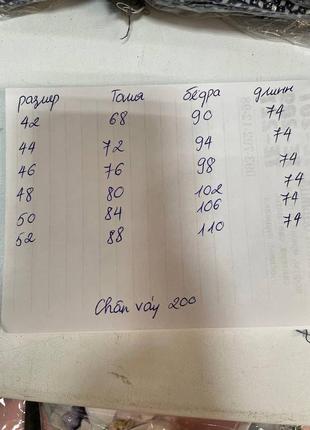 размер Талия бёдра длинн
42 68 90 74
44 72 94 74
46 76 98 74
48 80 102 74
50 84 106 74
52 88 110 74
Chân váy 200